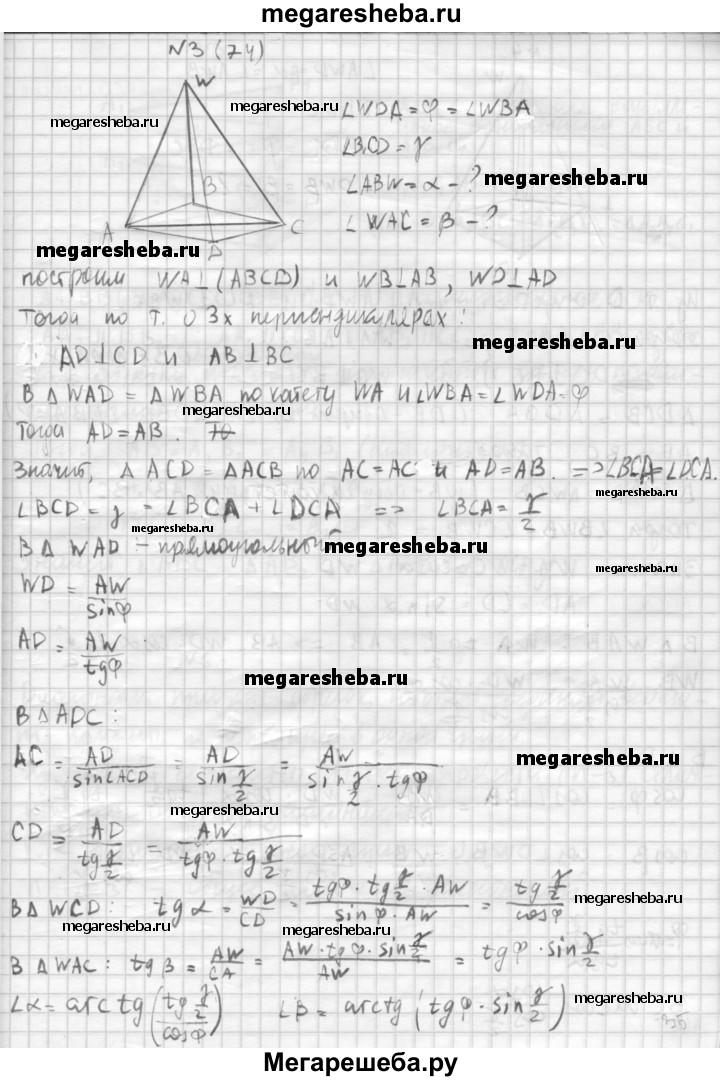 megaresheba.ru
№3 (74)
W
megaresheba.ru
megaresheba.ru
∠WDA = φ = ∠WBA
∠BCD = γ
B
∠ABW = α - ?
megaresheba.ru
A
C
∠WAC = β - ?
D
megaresheba.ru
построим WA⊥(ABCD) и WB⊥AB, WD⊥AD
Тогда по т. о 3х перпендикулярах:
megaresheba.ru
AD⊥CD и AB⊥BC
В Δ WAD = Δ WBA по катету WA и ∠WBA = ∠WDA = φ
megaresheba.ru
Тогда AD = AB.
Значит, Δ ACD = ΔACB по AC = AC и AD = AB. => ∠BCA = ∠DCA.
megaresheba.ru
∠BCD = γ = ∠BCA + ∠DCA => ∠BCA = γ/2
megaresheba.ru
В Δ WAD - прямоугольный
megaresheba.ru
megaresheba.ru
WD = AW/sinφ
AD = AW/tgφ
megaresheba.ru
В Δ ADC:
AC = AD/sin∠ACD = AD/sin γ/2 = AW/sin γ/2 · tgφ
megaresheba.ru
megaresheba.ru
CD = AD/tg γ/2 = AW/tgφ · tg γ/2
В Δ WCD: tg α = WD/CD = tgφ · tg γ/2 · AW/sin φ · AW = tg γ/2/cosφ
megaresheba.ru
megaresheba.ru
megaresheba.ru
В Δ WAC: tg β = AW/CA = AW · tg φ · sin γ/2/AW = tgφ · sin γ/2
megaresheba.ru
∠α = arctg(tg γ/2/cosφ) ∠β = arctg(tgφ · sin γ/2)
megaresheba.ru
Мегарешеба.ру